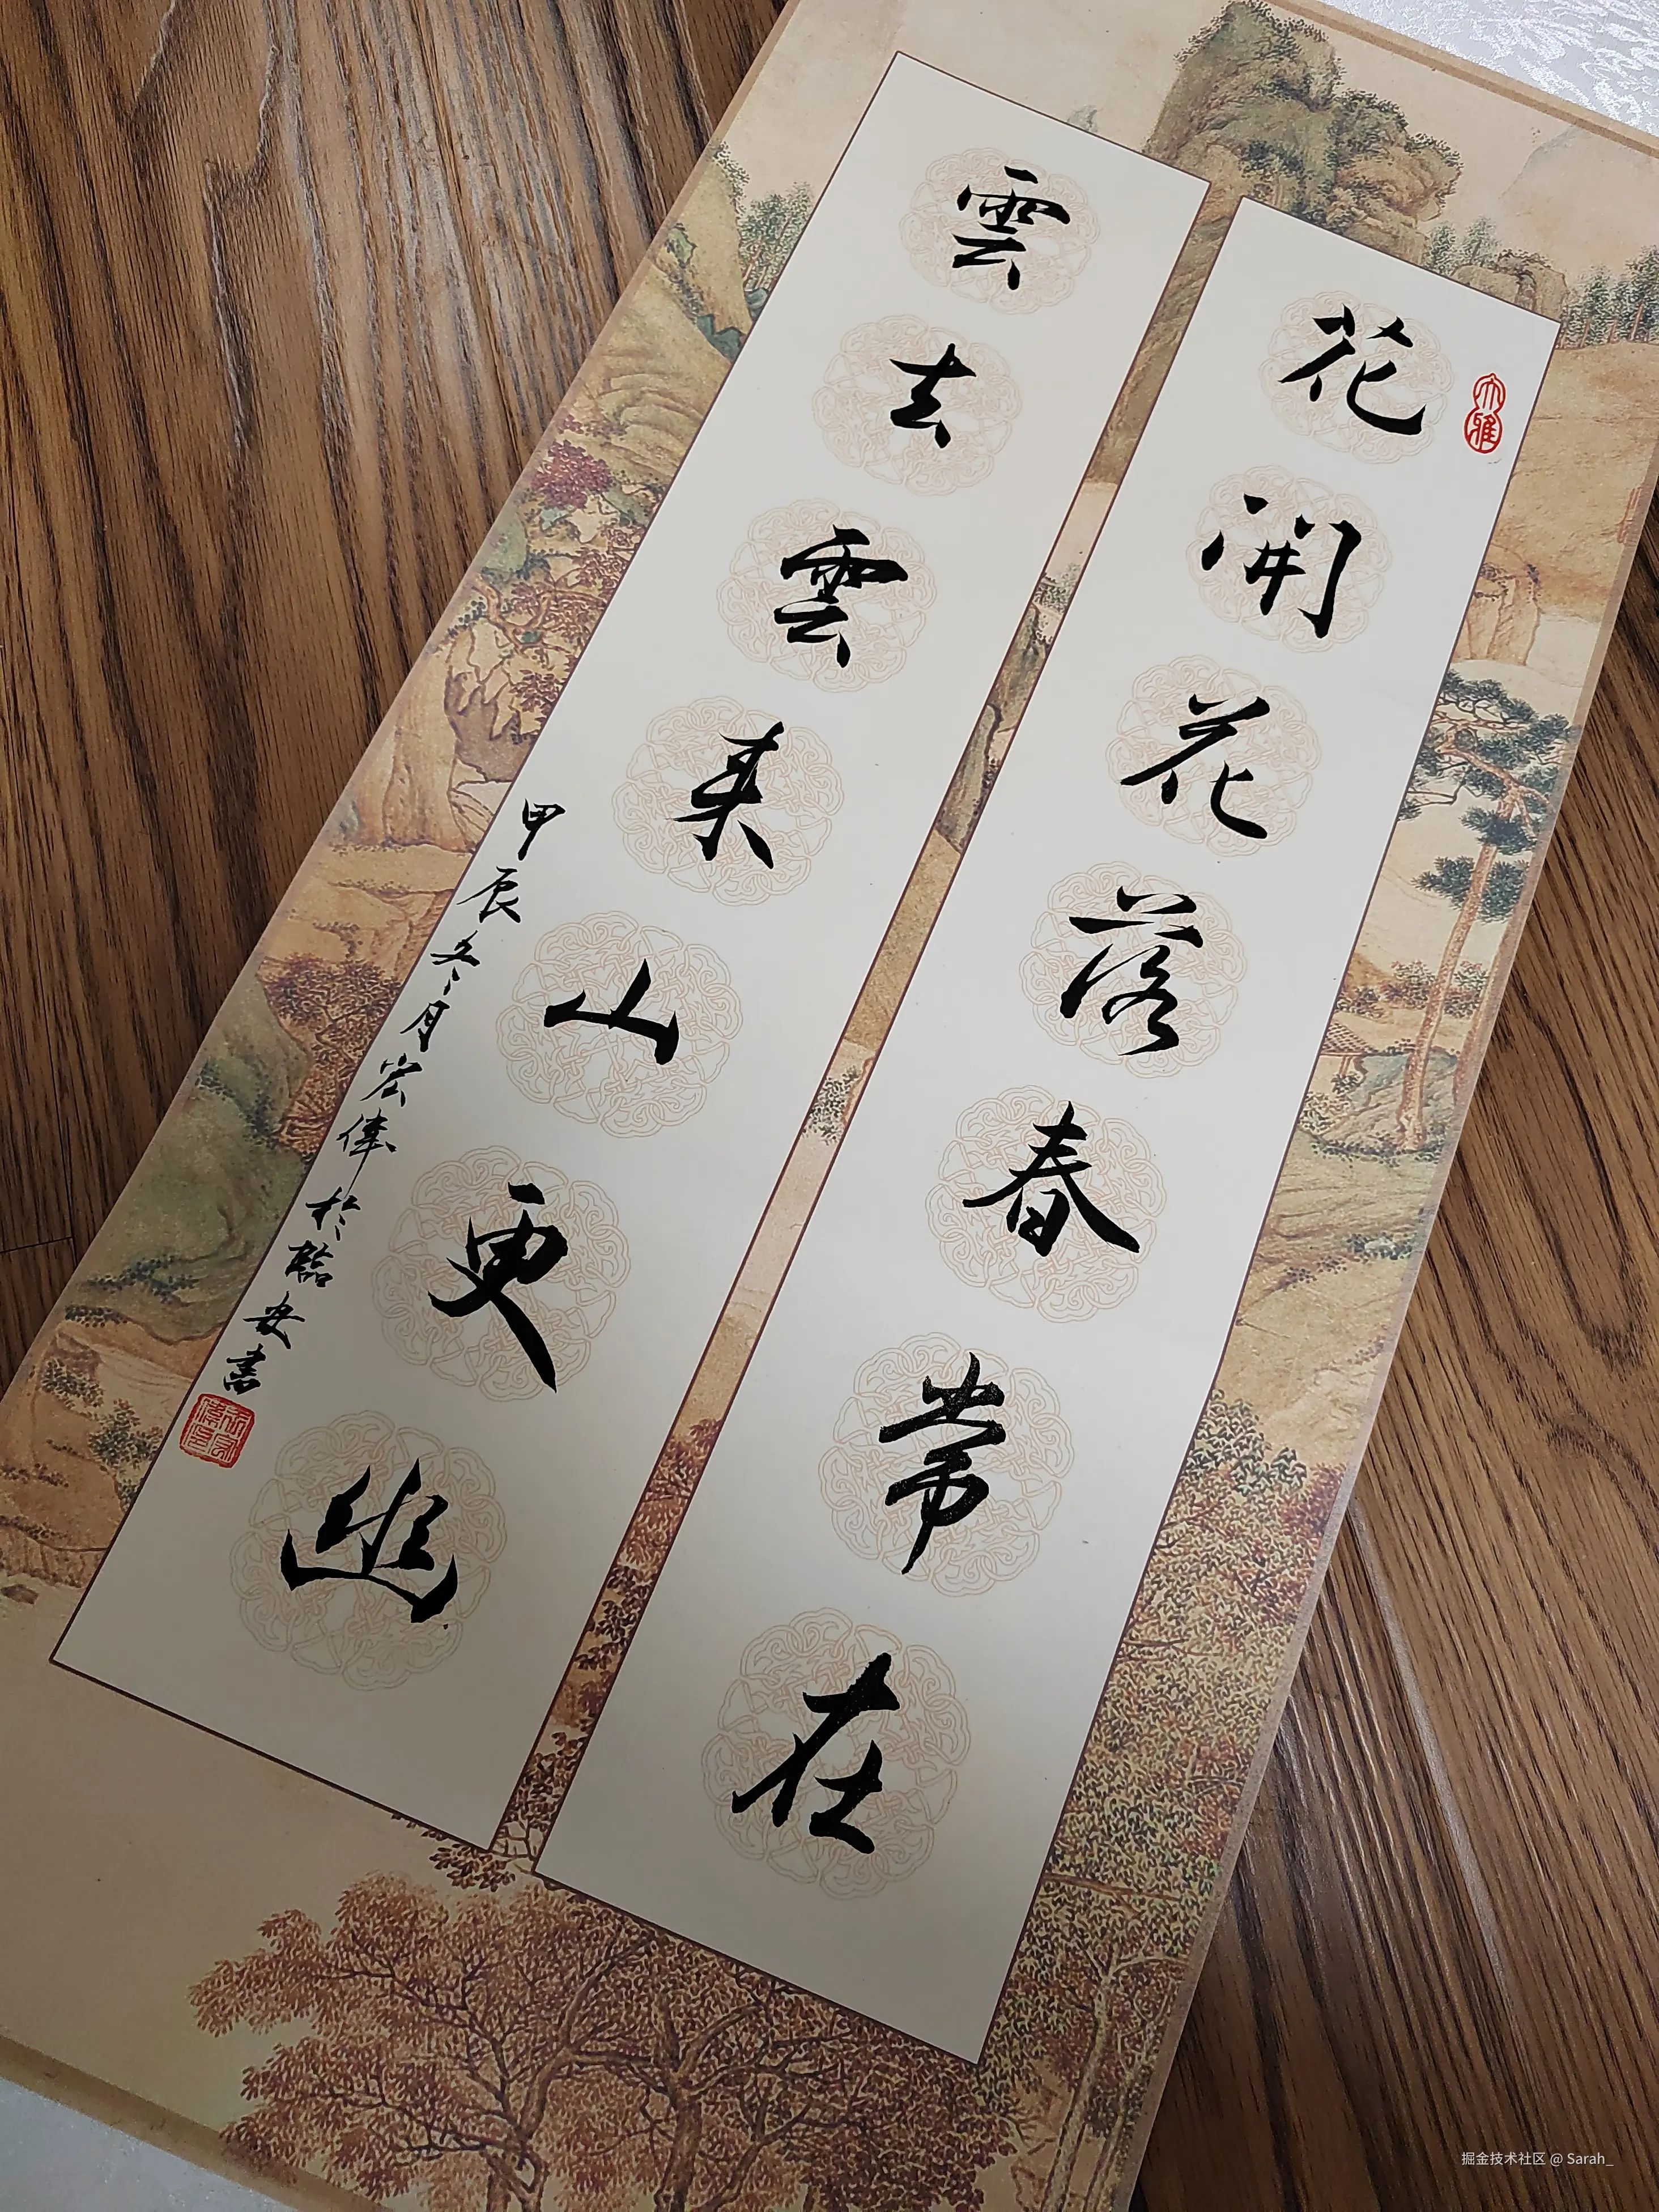 花開花落春常在
大雅
雲去雲来山更幽
甲辰冬月宏偉於臨安書
掘金技术社区 @ Sarah_